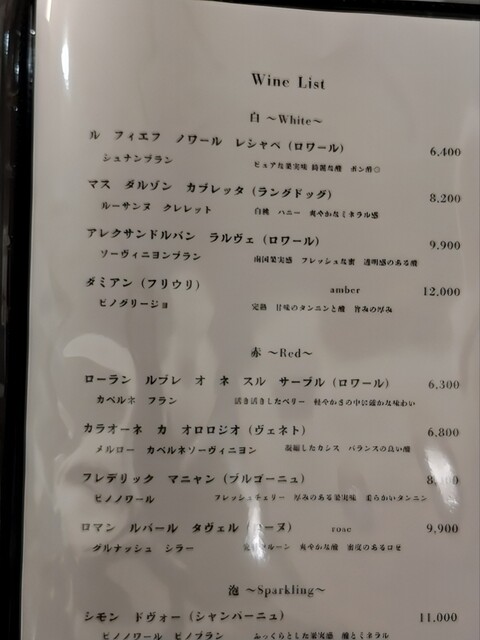 Wine List
白 ～White～
ル フィエフ ノワール レシャペ (ロワール) 6,400
シュナンブラン ピュアな果実味 綺麗な酸 ポン酢◎
マス ダルゾン カブレッタ (ラングドッグ) 8,200
ルーサンヌ クレレット 白桃 ハニー 爽やかなミネラル感
アレクサンドルバン ラルヴェ (ロワール) 9,900
ソーヴィニヨンブラン 南国果実感 フレッシュな蜜 透明感のある酸
ダミアン (フリウリ) amber 12,000
ピノグリージョ 完熟 甘味のタンニンと酸 旨みの厚み
赤 ～Red～
ローラン ルブレ オ ネ スル サーブル (ロワール) 6,300
カベルネ フラン 活き活きしたベリー 軽やかさの中に確かな味わい
カラオーネ カ オロロジオ (ヴェネト) 6,800
メルロー カベルネソーヴィニヨン 凝縮したカシス バランスの良い酸
フレデリック マニャン (ブルゴーニュ)
ピノノワール フレッシュチェリー 厚みのある果実味 柔らかいタンニン
ロマン ルバール タヴェル 9,900
グルナッシュ シラー 爽やかな酸 密度のあるロゼ
泡 ～Sparkling～
シモン ドヴォー (シャンパーニュ) 11,000
ピノノワール ピノブラン ふっくらとした果実感 酸とミネラル